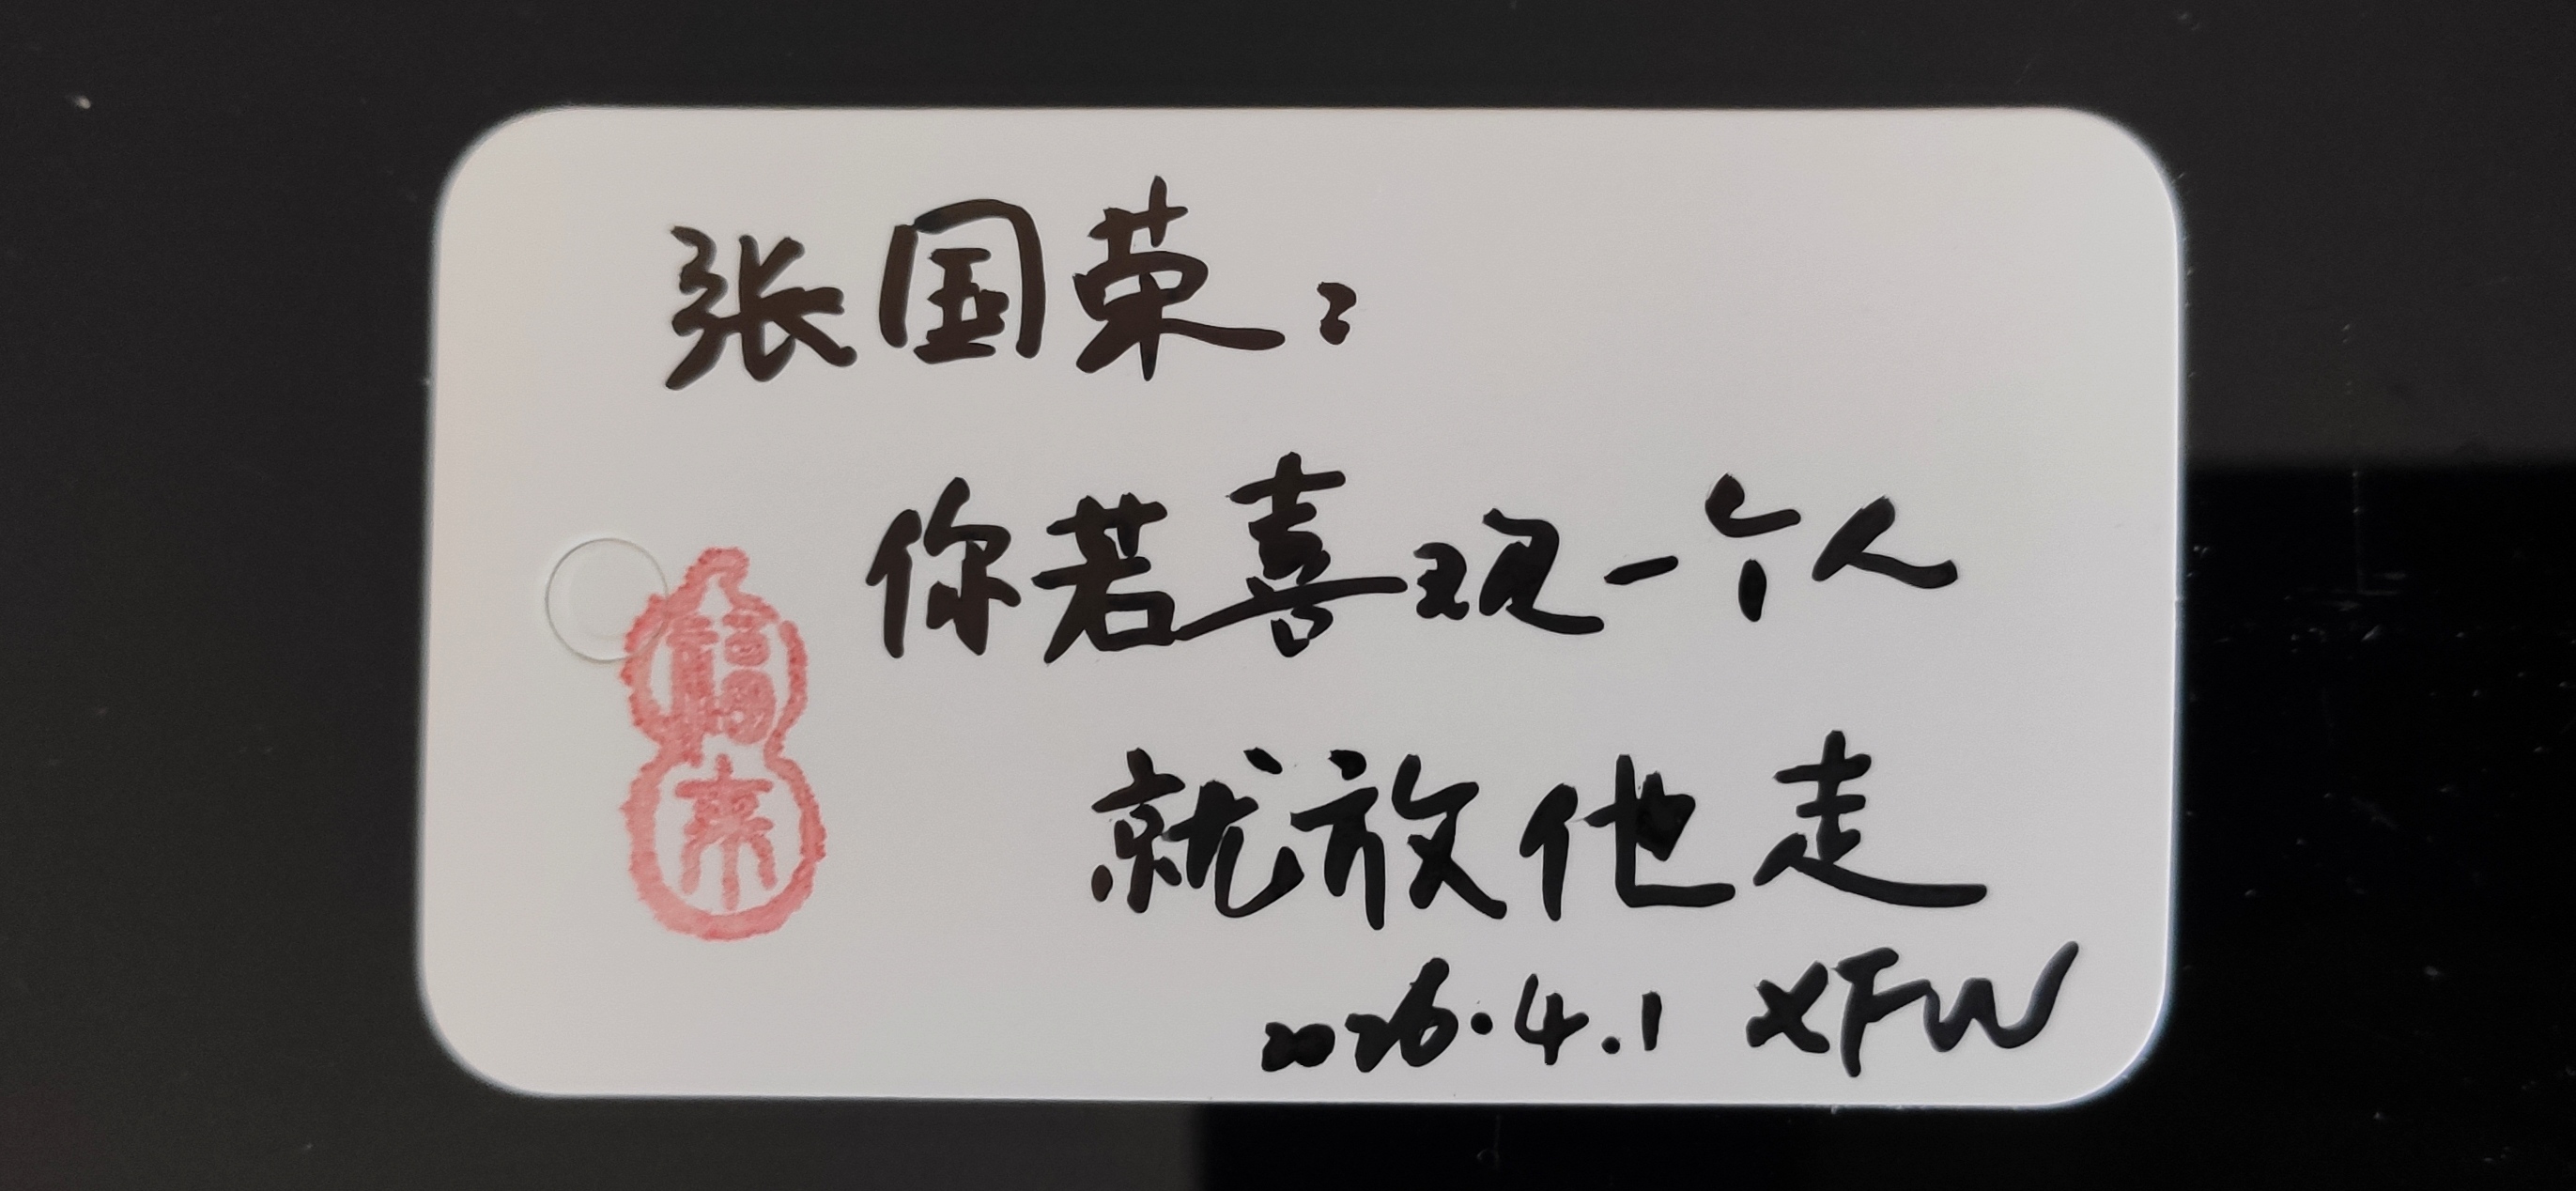 张国荣：
你若喜观一个人
就放他走
2026.4.1 XFW
福
来